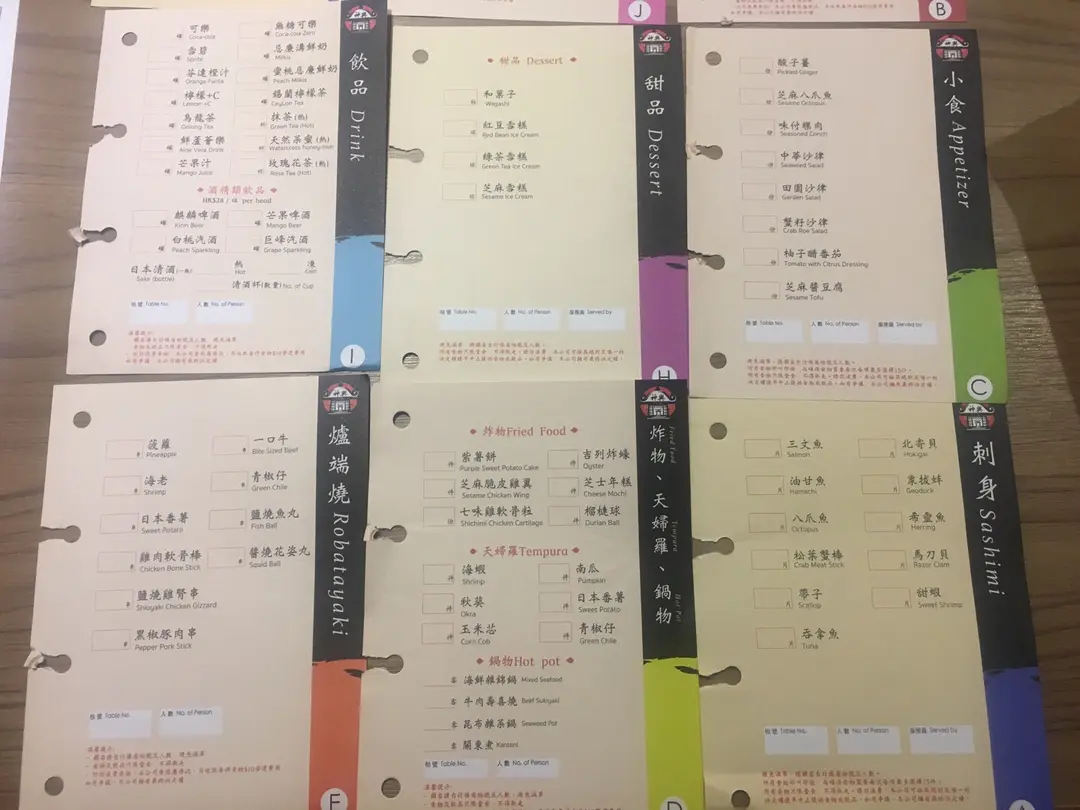 J
B
飲品 Drink
可樂
Coca-cola
無糖可樂
Coca-cola Zero
雪碧
Sprite
忌廉溝鮮奶
Milkis
芬達橙汁
Orange Fanta
蜜桃忌廉鮮奶
Peach Milkis
檸檬+C
Lemon +C
錫蘭檸檬茶
Ceylon Tea
烏龍茶
Oolong Tea
抹茶 (熱)
Green Tea (Hot)
鮮蘆薈樂
Aloe Vera Drink
天然茶蜜 (熱)
芒果汁
Mango Juice
玫瑰花茶 (熱)
Rose Tea (Hot)
酒精類飲品
HK$28 / 罐 per head
麒麟啤酒
Kirin Beer
芒果啤酒
Mango Beer
白桃汽酒
Peach Sparkling
巨峰汽酒
Grape Sparkling
日本清酒
Sake (bottle)
熱
Hot
凍
Cold
清酒杯(數量) No. of Cup
枱號 Table No.
人數 No. of Person
I
甜品 Dessert
甜品 Dessert
和菓子
Wagashi
紅豆雪糕
Red Bean Ice Cream
綠茶雪糕
Green Tea Ice Cream
芝麻雪糕
Sesame Ice Cream
枱號 Table No.
人數 No. of Person
服務員 Served by
H
小食 Appetizer
酸子薑
Pickled Ginger
芝麻八爪魚
Sesame Octopus
味付螺肉
Seasoned Conch
中華沙律
Seaweed Salad
田園沙律
Garden Salad
蟹籽沙律
Crab Roe Salad
柚子醋番茄
Tomato with Citrus Dressing
芝麻醬豆腐
Sesame Tofu
枱號 Table No.
人數 No. of Person
服務員 Served by
C
爐端燒 Robatayaki
菠蘿
Pineapple
一口牛
Bite Sized Beef
海老
Shrimp
青椒仔
Green Chile
日本番薯
Sweet Potato
鹽燒魚丸
Fish Ball
雞肉軟骨棒
Chicken Bone Stick
醬燒花姿丸
Squid Ball
鹽燒雞腎串
Shioyaki Chicken Gizzard
黑椒豚肉串
Pepper Pork Stick
枱號 Table No.
人數 No. of Person
溫馨提示:
E
炸物、天婦羅、鍋物
Fried Food
Tempura
Hot Pot
炸物Fried Food
紫薯餅
Purple Sweet Potato Cake
吉列炸蠔
Oyster
芝麻脆皮雞翼
Sesame Chicken Wing
芝士年糕
Cheese Mochi
七味雞軟骨粒
Shichimi Chicken Cartilage
榴槤球
Durian Ball
天婦羅Tempura
海蝦
Shrimp
南瓜
Pumpkin
秋葵
Okra
日本番薯
Sweet Potato
玉米芯
Corn Cob
青椒仔
Green Chile
鍋物Hot pot
客 海鮮雜錦鍋 Mixed Seafood
客 牛肉壽喜燒 Beef Sukiyaki
客 昆布雜菜鍋 Seaweed Pot
客 關東煮 Kantoni
枱號 Table No.
人數 No. of Person
溫馨提示:
D
刺身 Sashimi
三文魚
Salmon
北寄貝
Hokigai
油甘魚
Hamachi
象拔蚌
Geoduck
八爪魚
Octopus
希靈魚
Herring
松葉蟹棒
Crab Meat Stick
馬刀貝
Razor Clam
帶子
Scallop
甜蝦
Sweet Shrimp
吞拿魚
Tuna
枱號 Table No.
人數 No. of Person
服務員 Served by
A